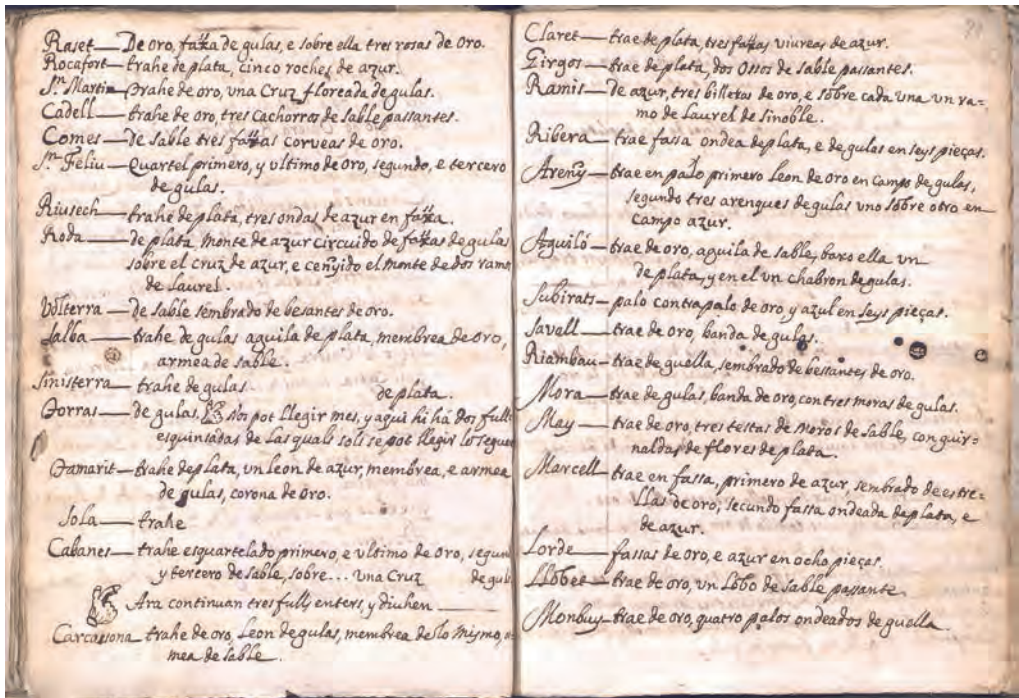 Raset — De oro, faxa de gulas, e sobre ella tres rosas de oro.
Rocafort — trahe de plata, cinco roches de azur.
Sn. Martin — trahe de oro, una Cruz floreada de gulas.
Cadell — trahe de oro, tres Cachorros de sable passantes.
Comes — de sable tres faxas corveas de oro.
Sn. Feliu — Quartel primero, y ultimo de oro, segundo, e tercero
de gulas.
Riusech — trahe de plata, tres ondas de azur en faxa.
Roda — de plata, monte de azur circuido de faxas de gulas
sobre el cruz de azur, e cenyido el monte de dos ramos
de laurel.
Volterra — de sable sembrado de besantes de oro.
Salba — trahe de gulas aguila de plata, membrea de oro,
armea de sable.
Sinisterra — trahe de gulas. de plata.
Torras — de gulas. Nos pot llegir mes, y aqui hi há dos fulls
esquinsadas de las quals sols se pot llegir lo seguen
Tamarit — trahe de plata, un leon de azur, membrea, e armea
de gulas, corona de oro.
Sola — trahe
Cabanes — trahe esquartelado primero, e ultimo de oro, segun
y tercero de sable, sobre... una Cruz de gul
Ara continuan tres fulls enters, y diuhen —
Carcassona — trahe de oro, Leon de gulas, membrea de lo mismo,
mea de sable.
Claret — trae de plata, tres faxas viureas de azur.
Girgos — trae de plata, dos Ossos de sable passantes.
Ramis — de azur, tres billetas de oro, e sobre cada una un ra=
mo de Laurel de sinoble.
Ribera — trae fassa ondea de plata, e de gulas en seys pieças.
Areny — trae en palo primero Leon de oro en campo de gulas,
segundo tres arenques de gulas uno sobre otro en
campo azur.
Aguiló — trae de oro, aguila de sable, baxo ella un
de plata, y en el un chabron de gulas.
Subirats — palo contrapalo de oro y azul en seys pieças.
Savall — trae de oro, banda de gulas.
Riambau — trae de guella, sembrado de besantes de oro.
Mora — trae de gulas, banda de oro, con tres moras de gulas.
May — trae de oro, tres testas de Moros de sable, con guir=
naldas de flores de plata.
Marcell — trae en fassa, primero de azur, sembrado de estre=
llas de oro, secundo fassa ondeada de plata, e
de azur.
Lorde — fassas de oro, e azur en ocho pieças.
Llobet — trae de oro, un Lobo de sable passante.
Monbuy — trae de oro, quatro palos ondeados de guella.